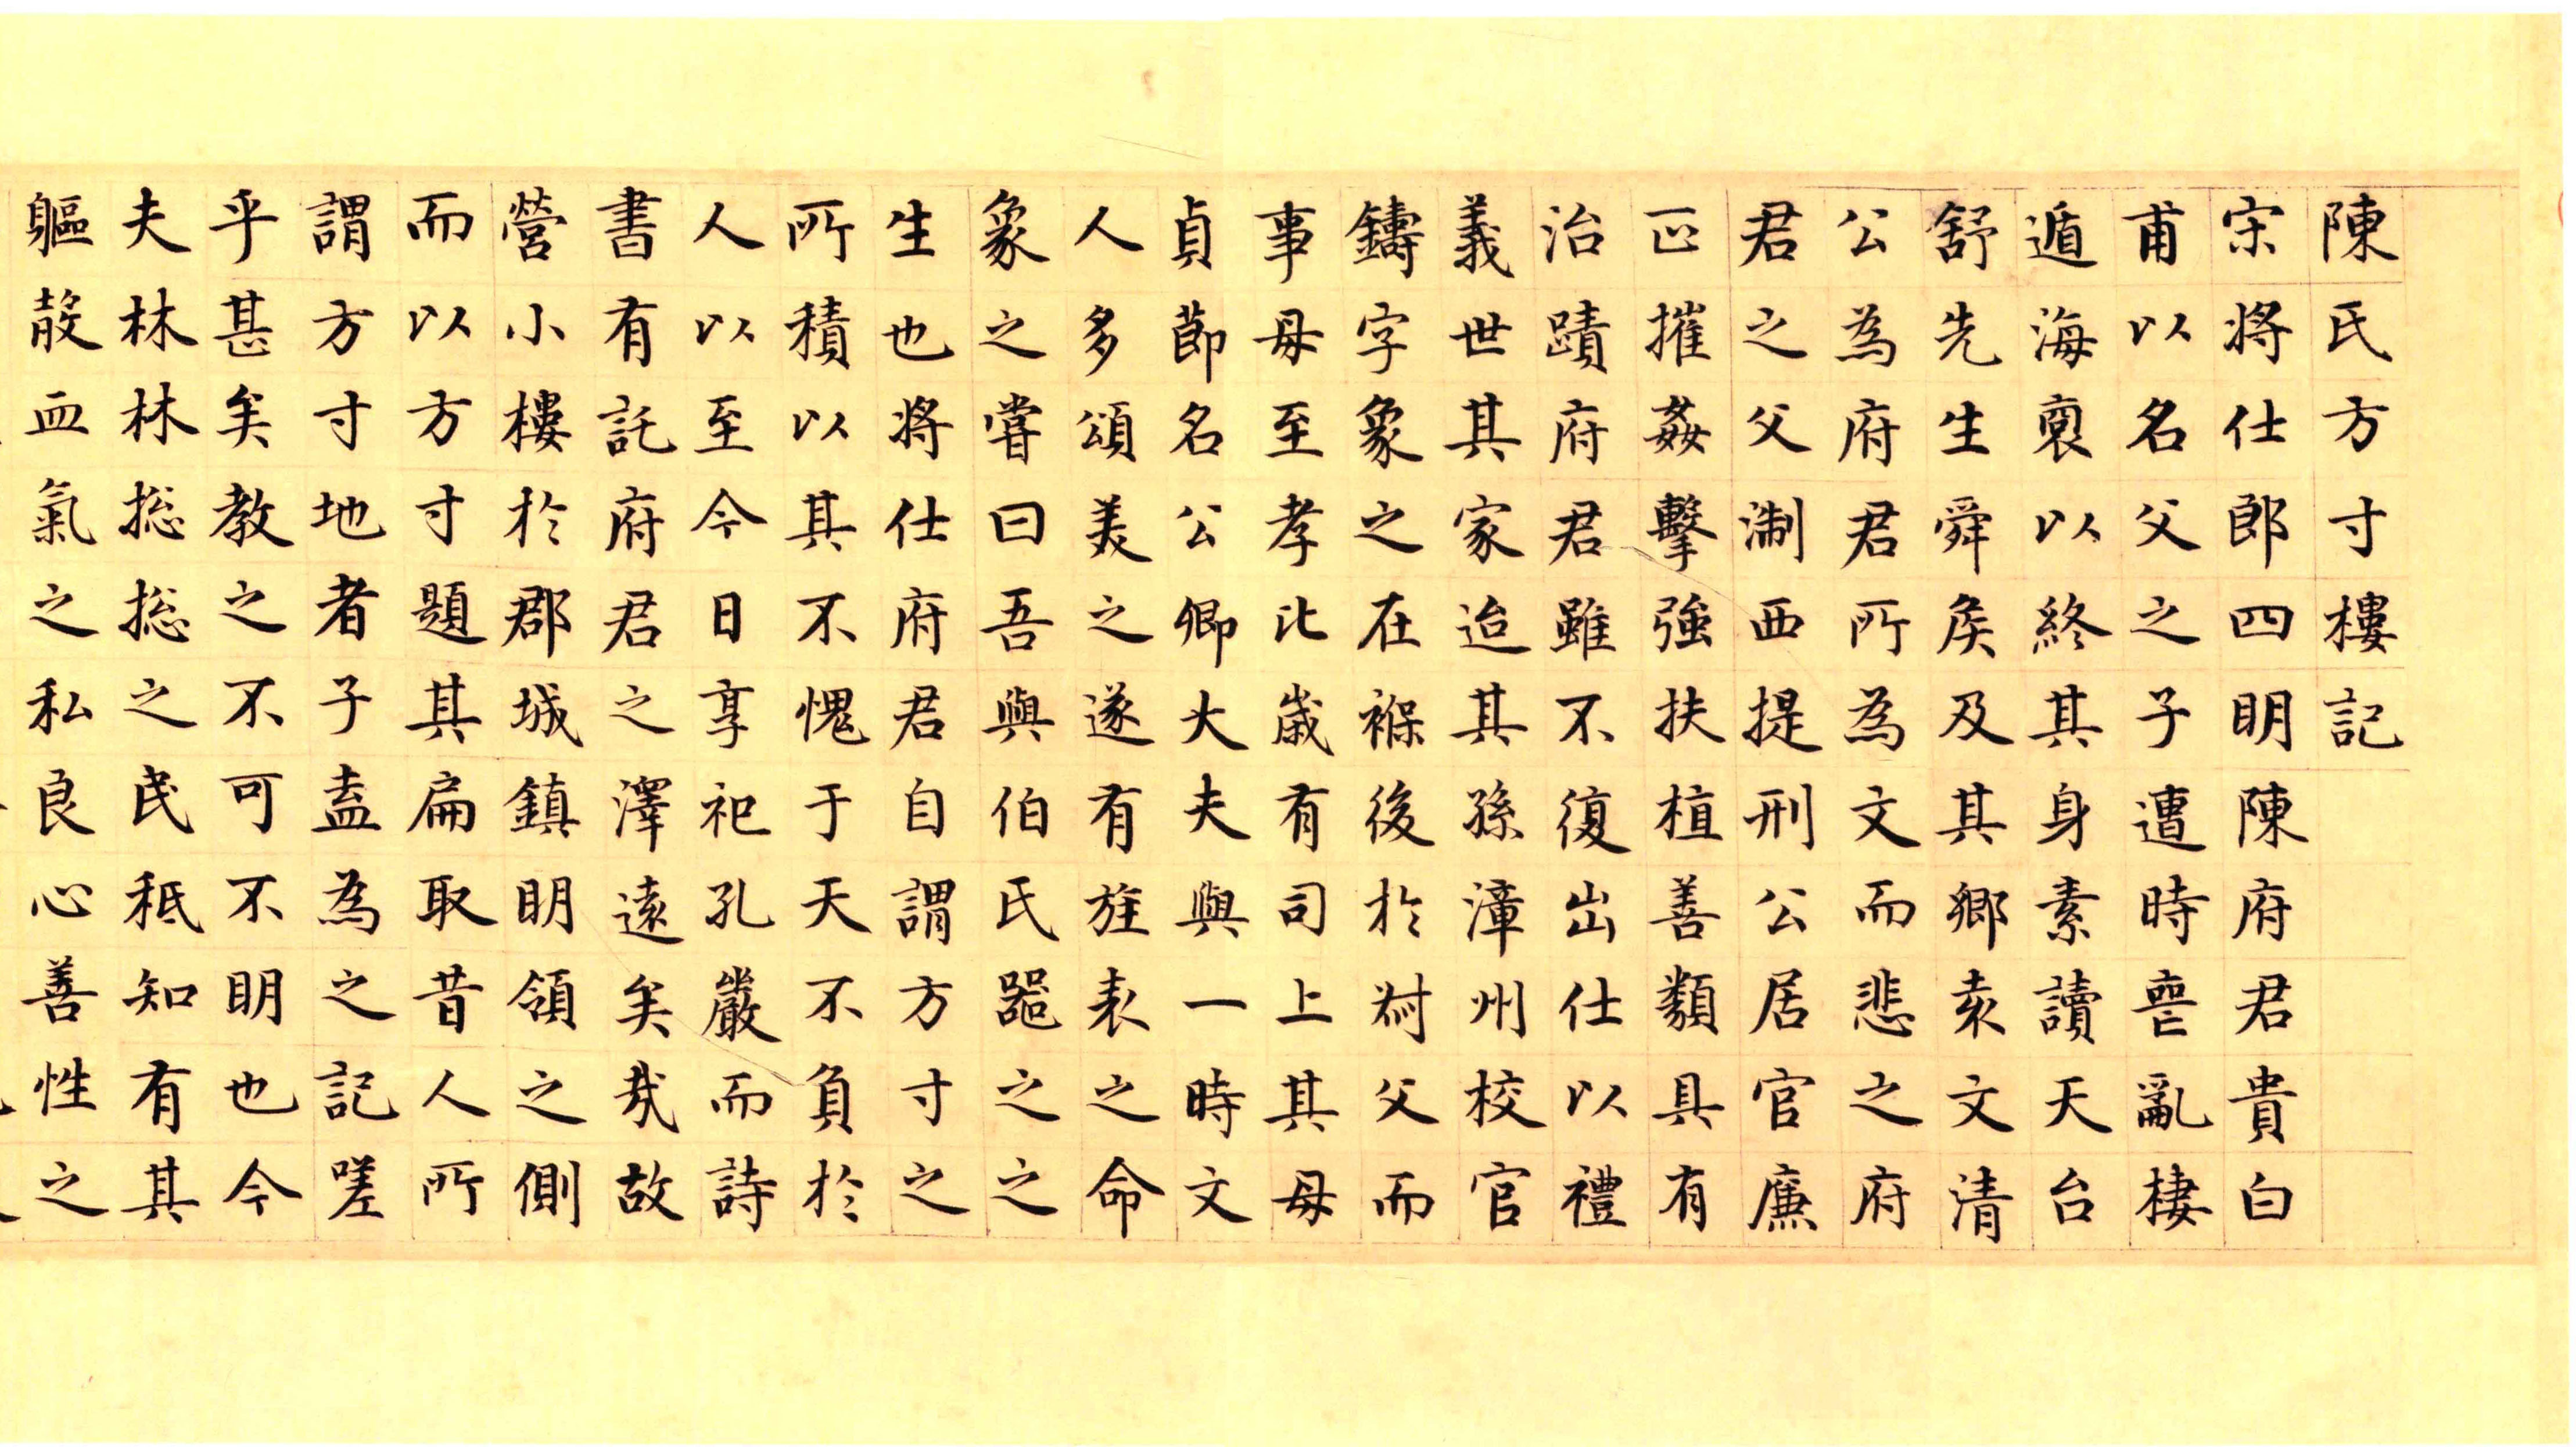 陳氏方寸樓記
宋將仕郎四明陳府君貴白
甫以名父之子遭時喪亂棲
遁海裔以終其身素讀天台
舒先生舜矦及其鄉袁文清
公為府君所為文而悲之府
君之父淛西提刑公居官廉
正摧姦擊強扶植善類具有
治蹟府君雖不復出仕以禮
義世其家迨其孫漳州校官
鑄字象之在褓後於村父而
事母至孝比歲有司上其母
貞節名公卿大夫與一時文
人多頌美之遂有旌表之命
象之嘗曰吾與伯氏器之之
生也將仕府君自謂方寸之
所積以其不愧于天不負於
人以至今日享祀孔嚴而詩
書有託府君之澤遠矣哉故
營小樓於郡城鎮明領之側
而以方寸題其扁取昔人所
謂方寸地者子盍為之記嗟
乎甚矣教之不可不明也今
夫林林捴捴之民秪知有其
軀殽血氣之私良心善性之